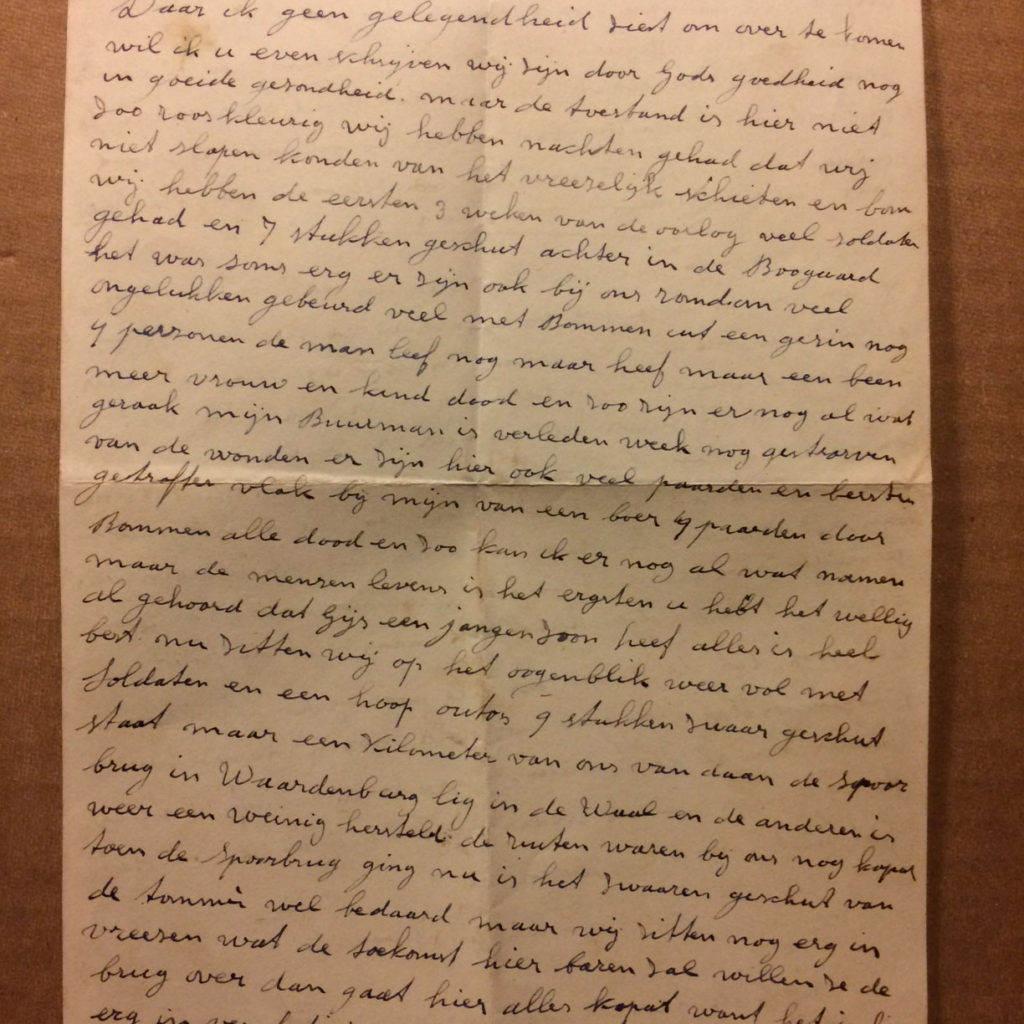 Daar ik geen gelegendheid ziet om over te komen
wil ik u even schrijven wij zijn door Gods goedheid nog
in goeide gezondheid. maar de toestand is hier niet
zoo rooskleurig wij hebben nachten gehad dat wij
niet slapen konden van het vreezelijk schieten en bom
wij hebben de eersten 3 weken van de oorlog veel soldaten
gehad en 7 stukken geschut achter in de Boogaard
het was soms erg er zijn ook bij ons rondom veel
ongelukken gebeurd veel met Bommen uit een gezin nog
4 personen de man leef nog maar heef maar een been
meer vrouw en kind dood en zoo zijn er nog al wat
geraak mijn Buurman is verleden week nog gestorven
van de wonden er zijn hier ook veel paarden en beesten
getroffen vlak bij mijn van een boer 4 paarden door
Bommen alle dood en zoo kan ik er nog al wat namen
maar de mensen levens is het ergsten u hebt het wellig
al gehoord dat Gijs een jongen zoon heef alles is heel
best nu zitten wij op het oogenblik weer vol met
Soldaten en een hoop outos 9 stukken zwaar geschut
staat maar een Kilometer van ons van daan de spoor
brug in Waardenburg lig in de Waal en de anderen is
weer een weinig hersteld de ruiten waren bij ons nog kapot
toen de spoorbrug ging nu is het zwaaren geschut van
de tommi's wel bedaard maar wij zitten nog erg in
vreesen wat de toekomst hier baren zal willen ze de
brug over dan gaat hier alles kapot want het
erg